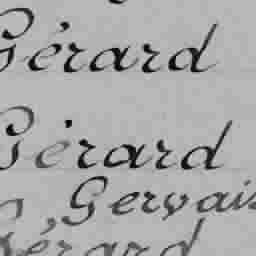 Gérard
Gérard
Gervais
Gérard